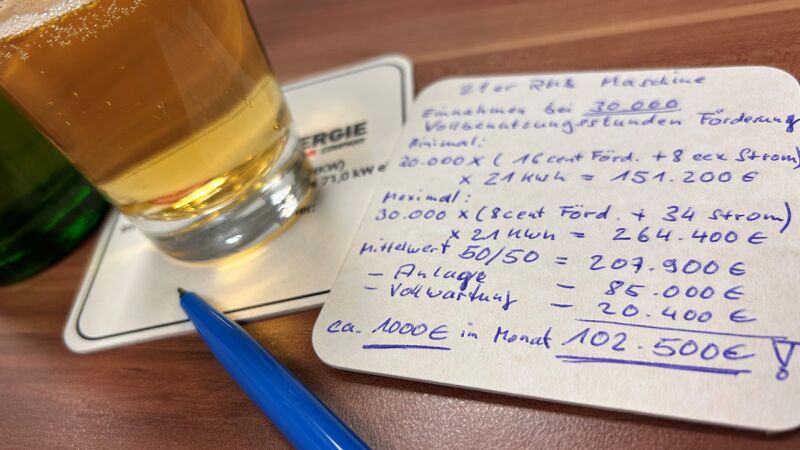 ERGIE
COMPANY
HKW)
71,0 kW e
2ter RMB Maschine
Einnahmen bei 30.000
Vollbenutzungsstunden Förderung
Minimal:
30.000 x (16 cent Förd. + 8 eex Strom)
x 21 kWh = 151.200 €
Maximal:
30.000 x (8 cent Förd. + 34 Strom)
x 21 kWh = 264.400 €
Mittelwert 50/50 = 207.900 €
- Anlage - 85.000 €
- Vollwartung - 20.400 €
ca. 1000 € in Monat 102.500 € !